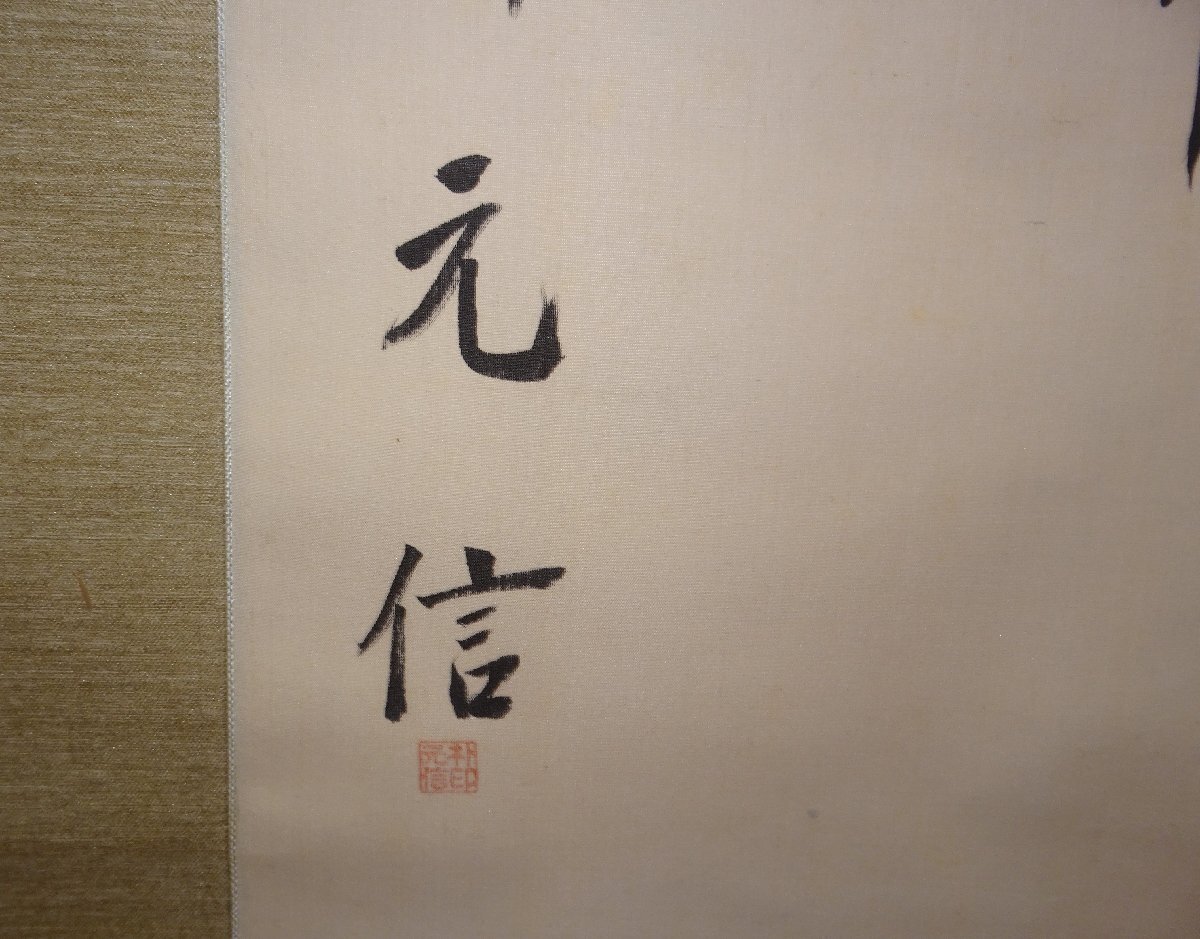 元信
朴印
元信